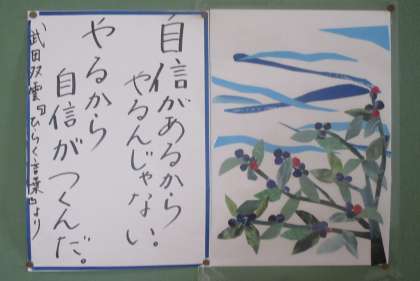 自信があるから
やるんじゃない。
やるから
自信がつくんだ。
武田双雲『ひらく言葉』より